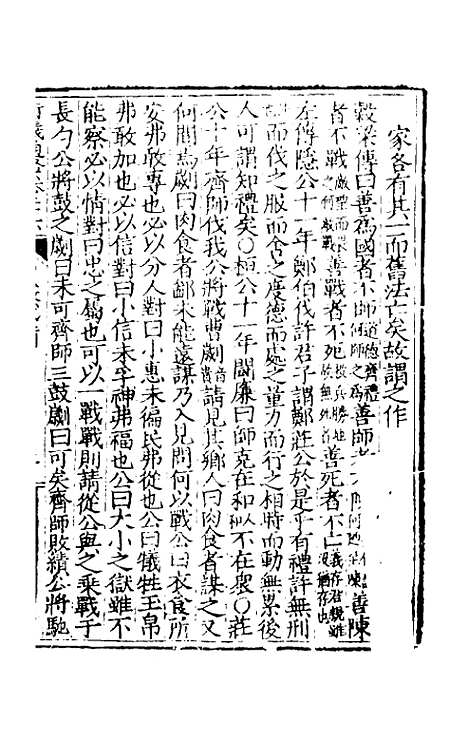 家各有其一而舊法亡矣故謂之作
穀梁傳曰善為國者不師道德齊禮何師之為善師者不陳善陳
者不戰敵望而畏之何敵戰善戰者不死投兵勝地故無死者善死者不亡義存君親雖沒猶存也
左傳隱公十一年鄭伯伐許君子謂鄭莊公於是乎有禮許無刑
而伐之服而舍之度德而處之量力而行之相時而動無累後
人可謂知禮矣〇桓公十一年鬬廉曰師克在和不在衆〇莊
公十年齊師伐我公將戰曹劌請見其鄉人曰肉食者謀之又
何間焉劌曰肉食者鄙未能遠謀乃入見問何以戰公曰衣食所
安弗敢專也必以分人對曰小惠未徧民弗從也公曰犧牲玉帛
弗敢加也必以信對曰小信未孚神弗福也公曰大小之獄雖不
能察必以情對曰忠之屬也可以一戰戰則請從公與之乘戰于
長勺公將鼓之劌曰未可齊師三鼓劌曰可矣齊師敗績公將馳